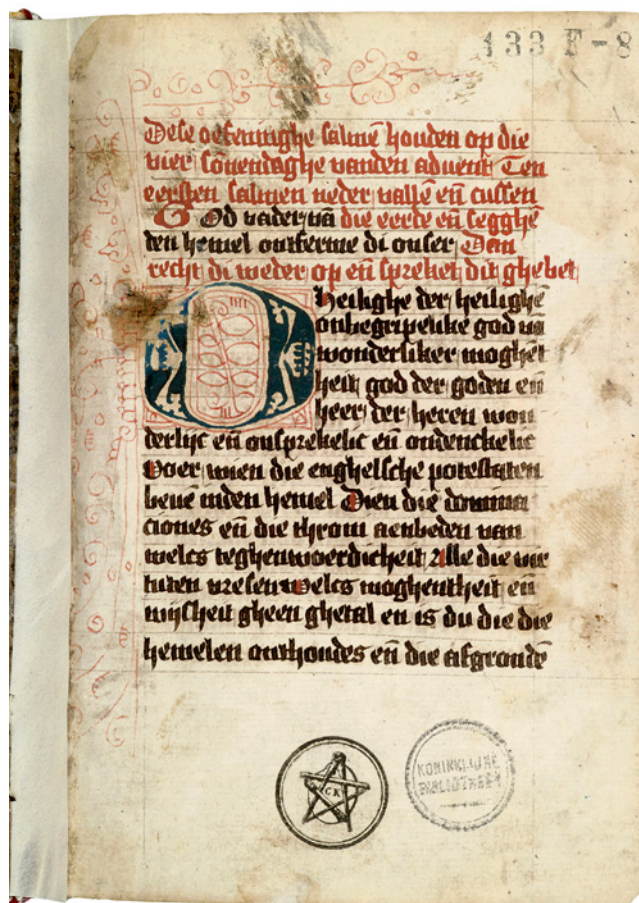 133 F-8
Dese oefeninghe salmē houden op die
vier sonendaghe vanden advent Ten
eersten salmen neder vallē eñ cussen
God vader vā die eerde eñ segghē
den hemel ontferme di onser Dan
recht di weder op eñ spreket dit ghebet
O heilighe der heilighē
onbegripelike god vā
wonderliker moghēt
heit god der goden eñ
heer der heren won
derlijc eñ onsprekelic eñ ondenckelic
Voer wien die enghelsche potestaten
beuē inden hemel Dien die domina
ciones eñ die throni aenbeden van
welcs teghenwoerdicheit Alle die vir
tuten vresen welcs moghentheit eñ
wijsheit gheen ghetal en is du die die
hemelen onthoudes eñ die afgrondē
CK
KONINKLIJKE
BIBLIOTHEEK